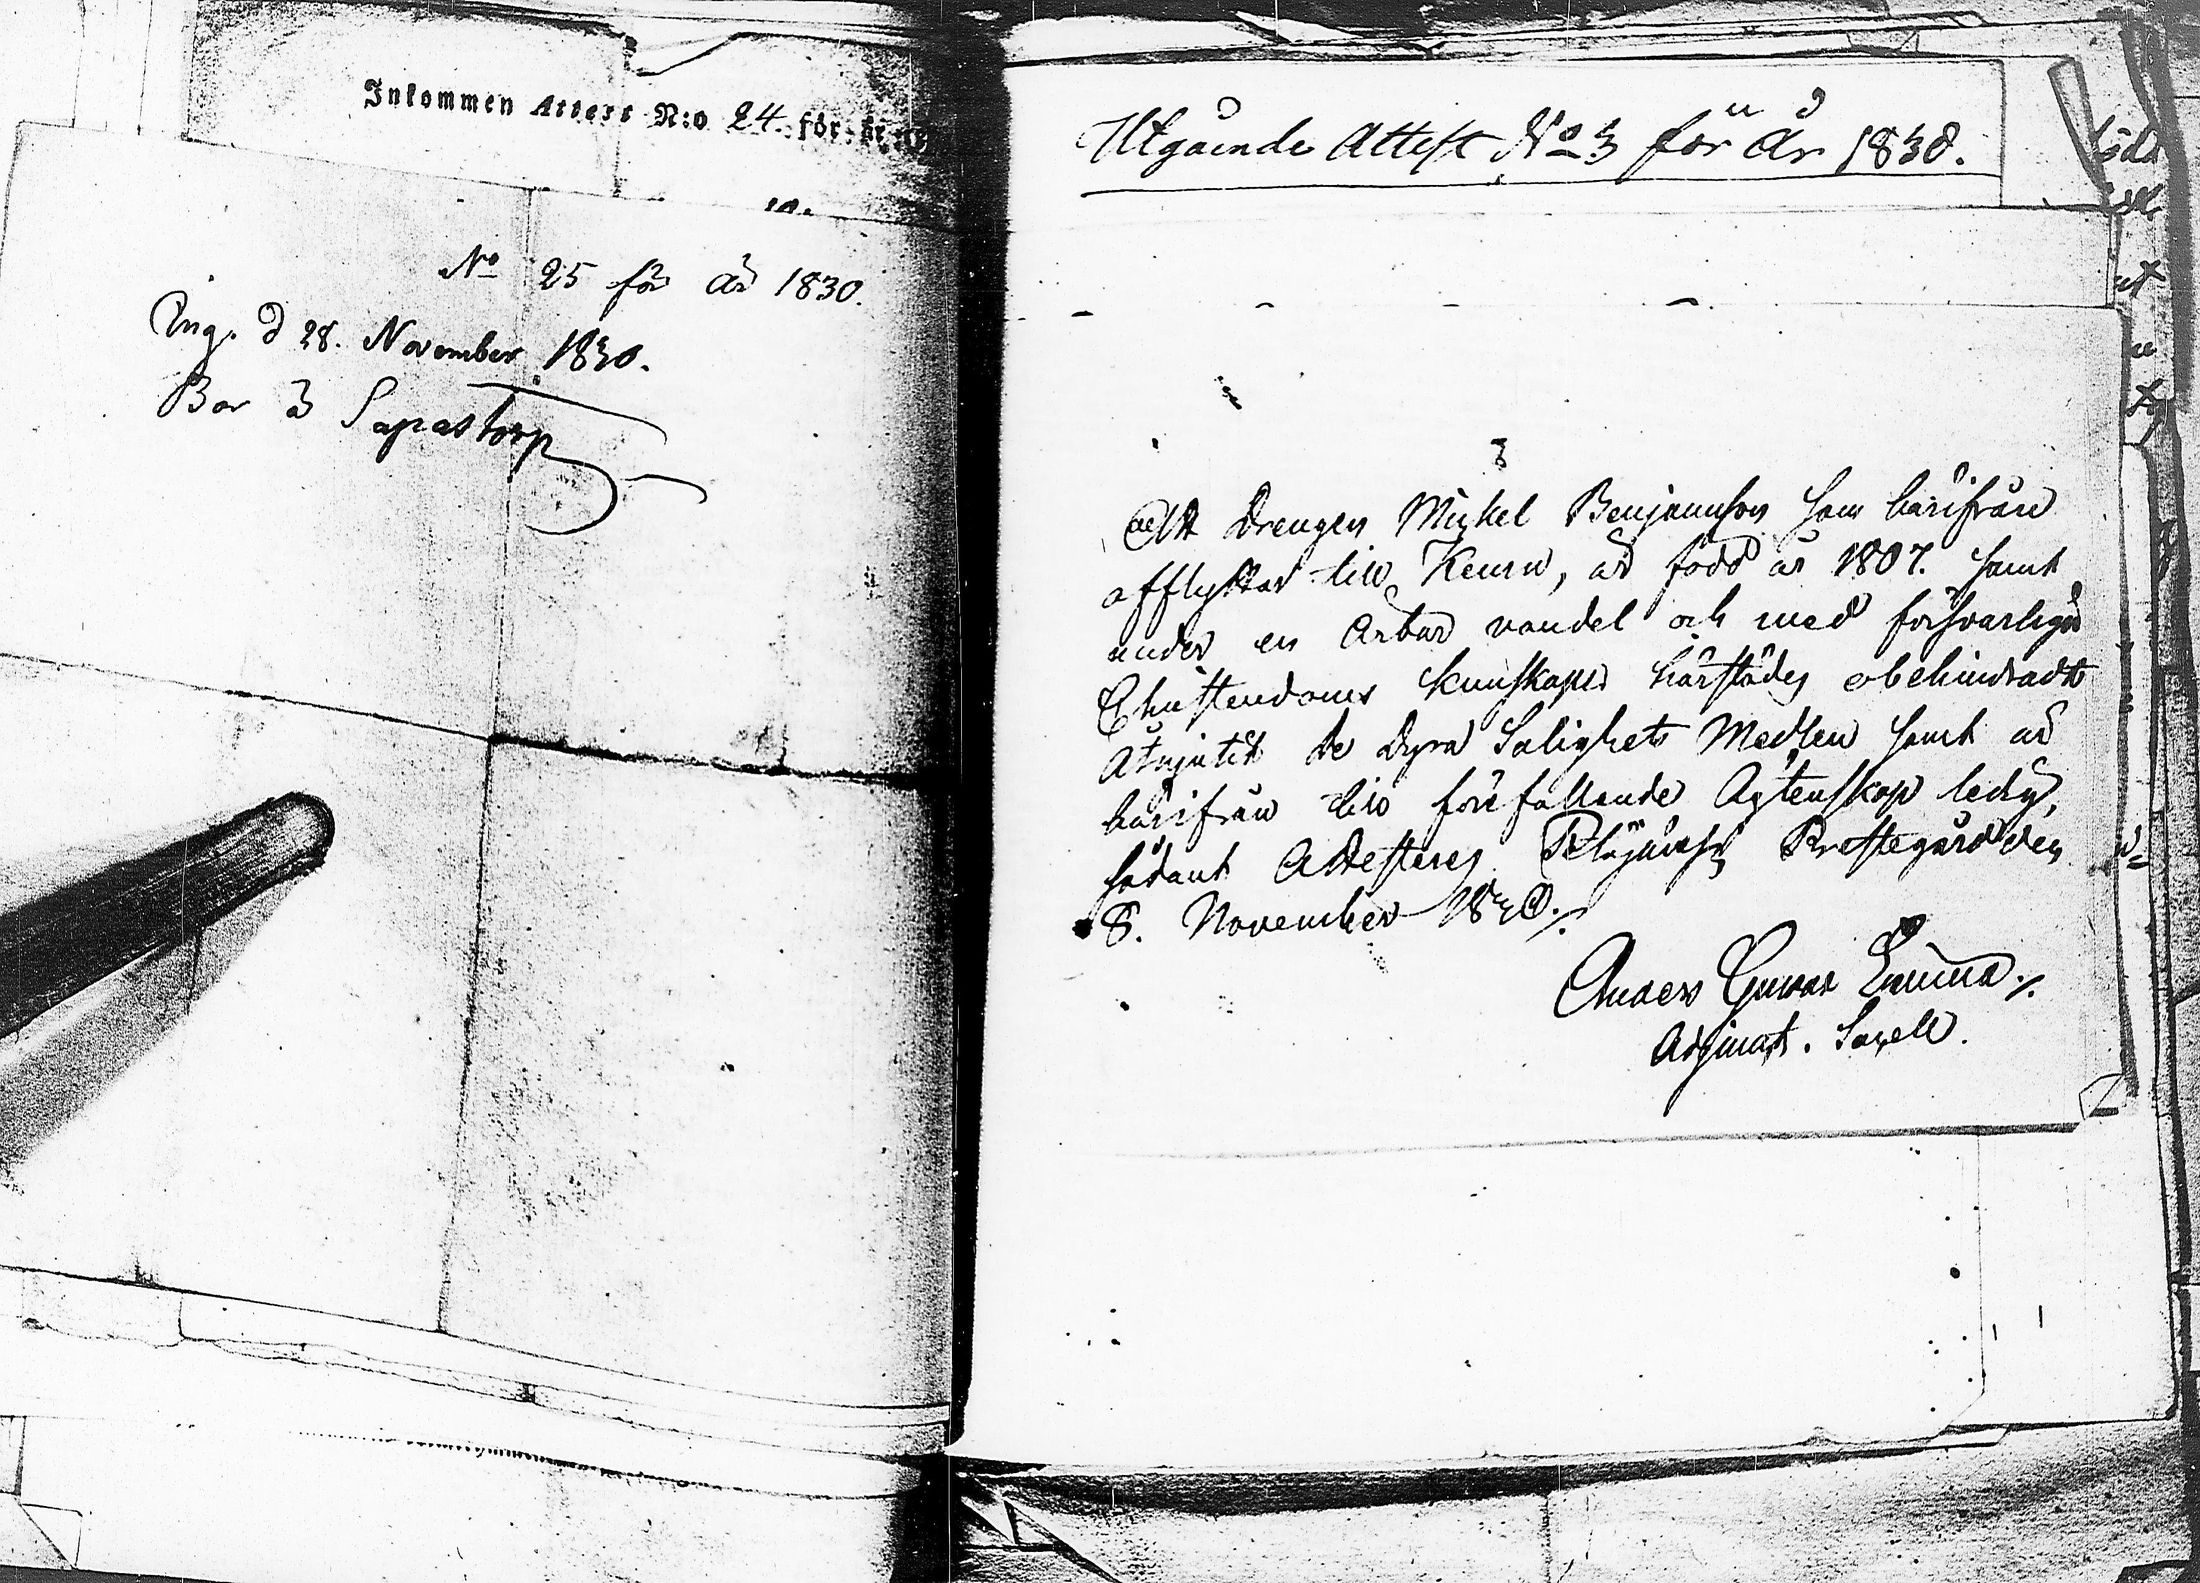 Inkommen Attest N:o 24. för år
No 25 för år 1830.
Ing. d 28. November 1830.
Bor å Sapastorp
Utgående Attest No 3 för År 1830.
Att Drengen Mickel Benjaminson som härifrån
afflyttar till Kemi, är född år 1807. samt
under en Ärbar vandel och med försvarliga
Christendoms kunskaper härstädes obehindradt
Åtnjutit de dyra Salighets Medlen samt är
härifrån till förefallande Ägtenskap ledig,
sådant Attesteras Prestegård den
8. November 1830./.
Anders Gunnar
Adjunct. Sacell.